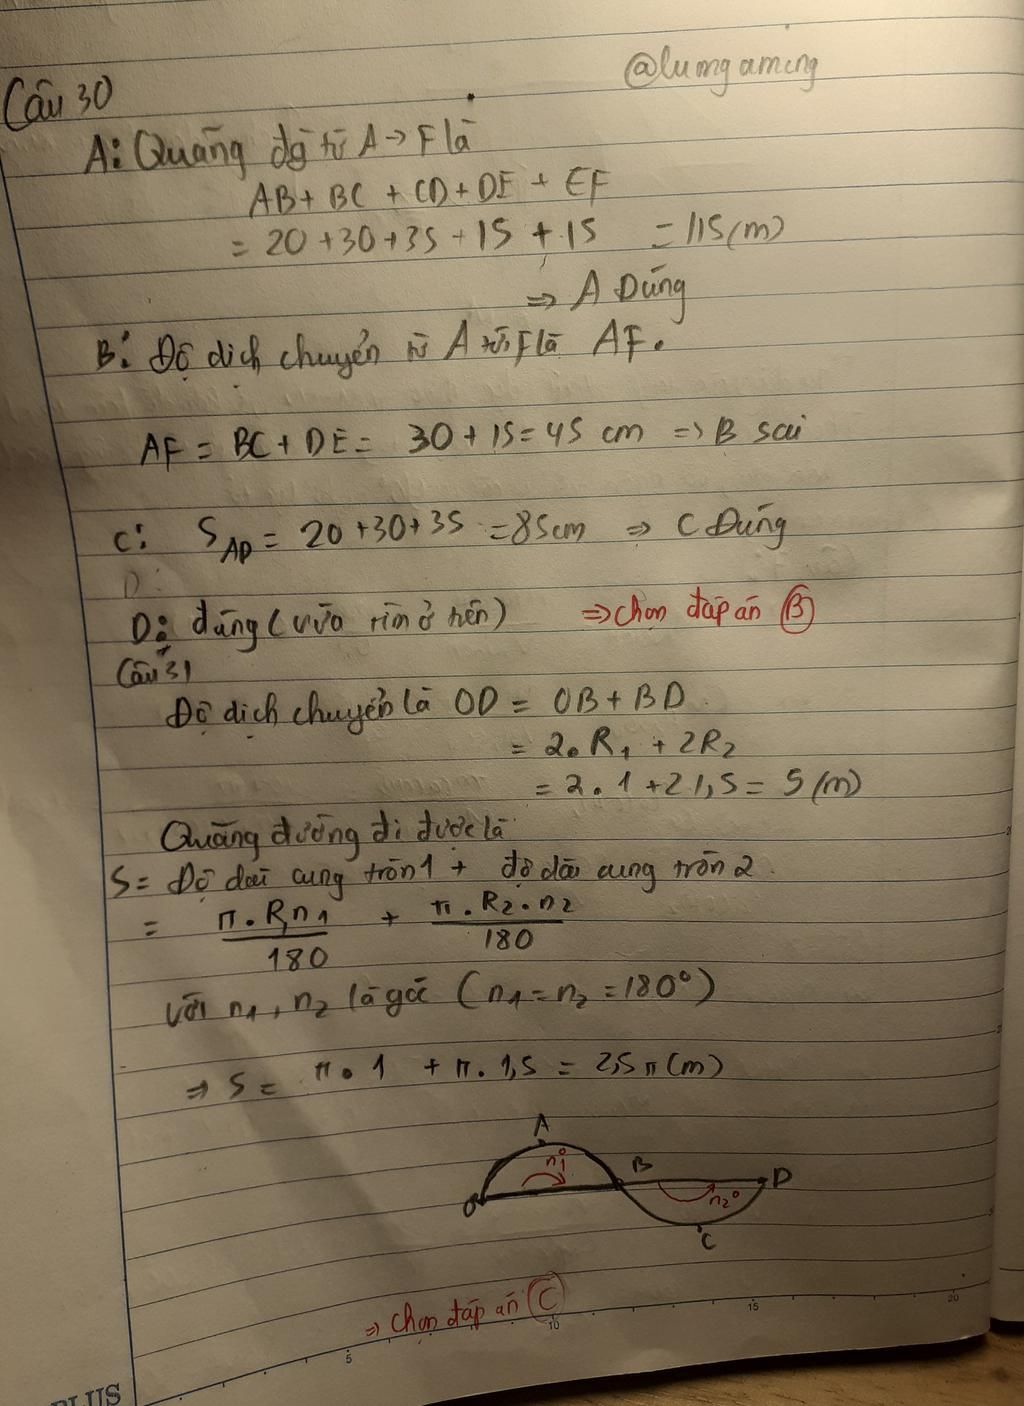 @lumgaming
Câu 30
A: Quãng đg từ A → F là
AB + BC + CD + DE + EF
= 20 + 30 + 35 + 15 + 15 = 115 (m)
⇒ A Đúng
B: Độ dịch chuyển từ A tới F là AF.
AF = BC + DE = 30 + 15 = 45 cm ⇒ B sai
C: S_AD = 20 + 30 + 35 = 85 cm ⇒ C Đúng
D:
D: đúng (vừa tìm ở trên) ⇒ chọn đáp án B
Câu 31
Độ dịch chuyển là OD = OB + BD
= 2.R₁ + 2R₂
= 2.1 + 2 1,5 = 5 (m)
Quãng đường đi được là
S = Độ dài cung tròn 1 + độ dài cung tròn 2.
= π.R₁n₁/180 + π.R₂.n₂/180
với n₁, n₂ là góc (n₁ = n₂ = 180°)
⇒ S = π.1 + π.1,5 = 2,5π (m)
A
n₁° B D
O n₂°
C
⇒ chọn đáp án C
5 10 15 20
PLUS